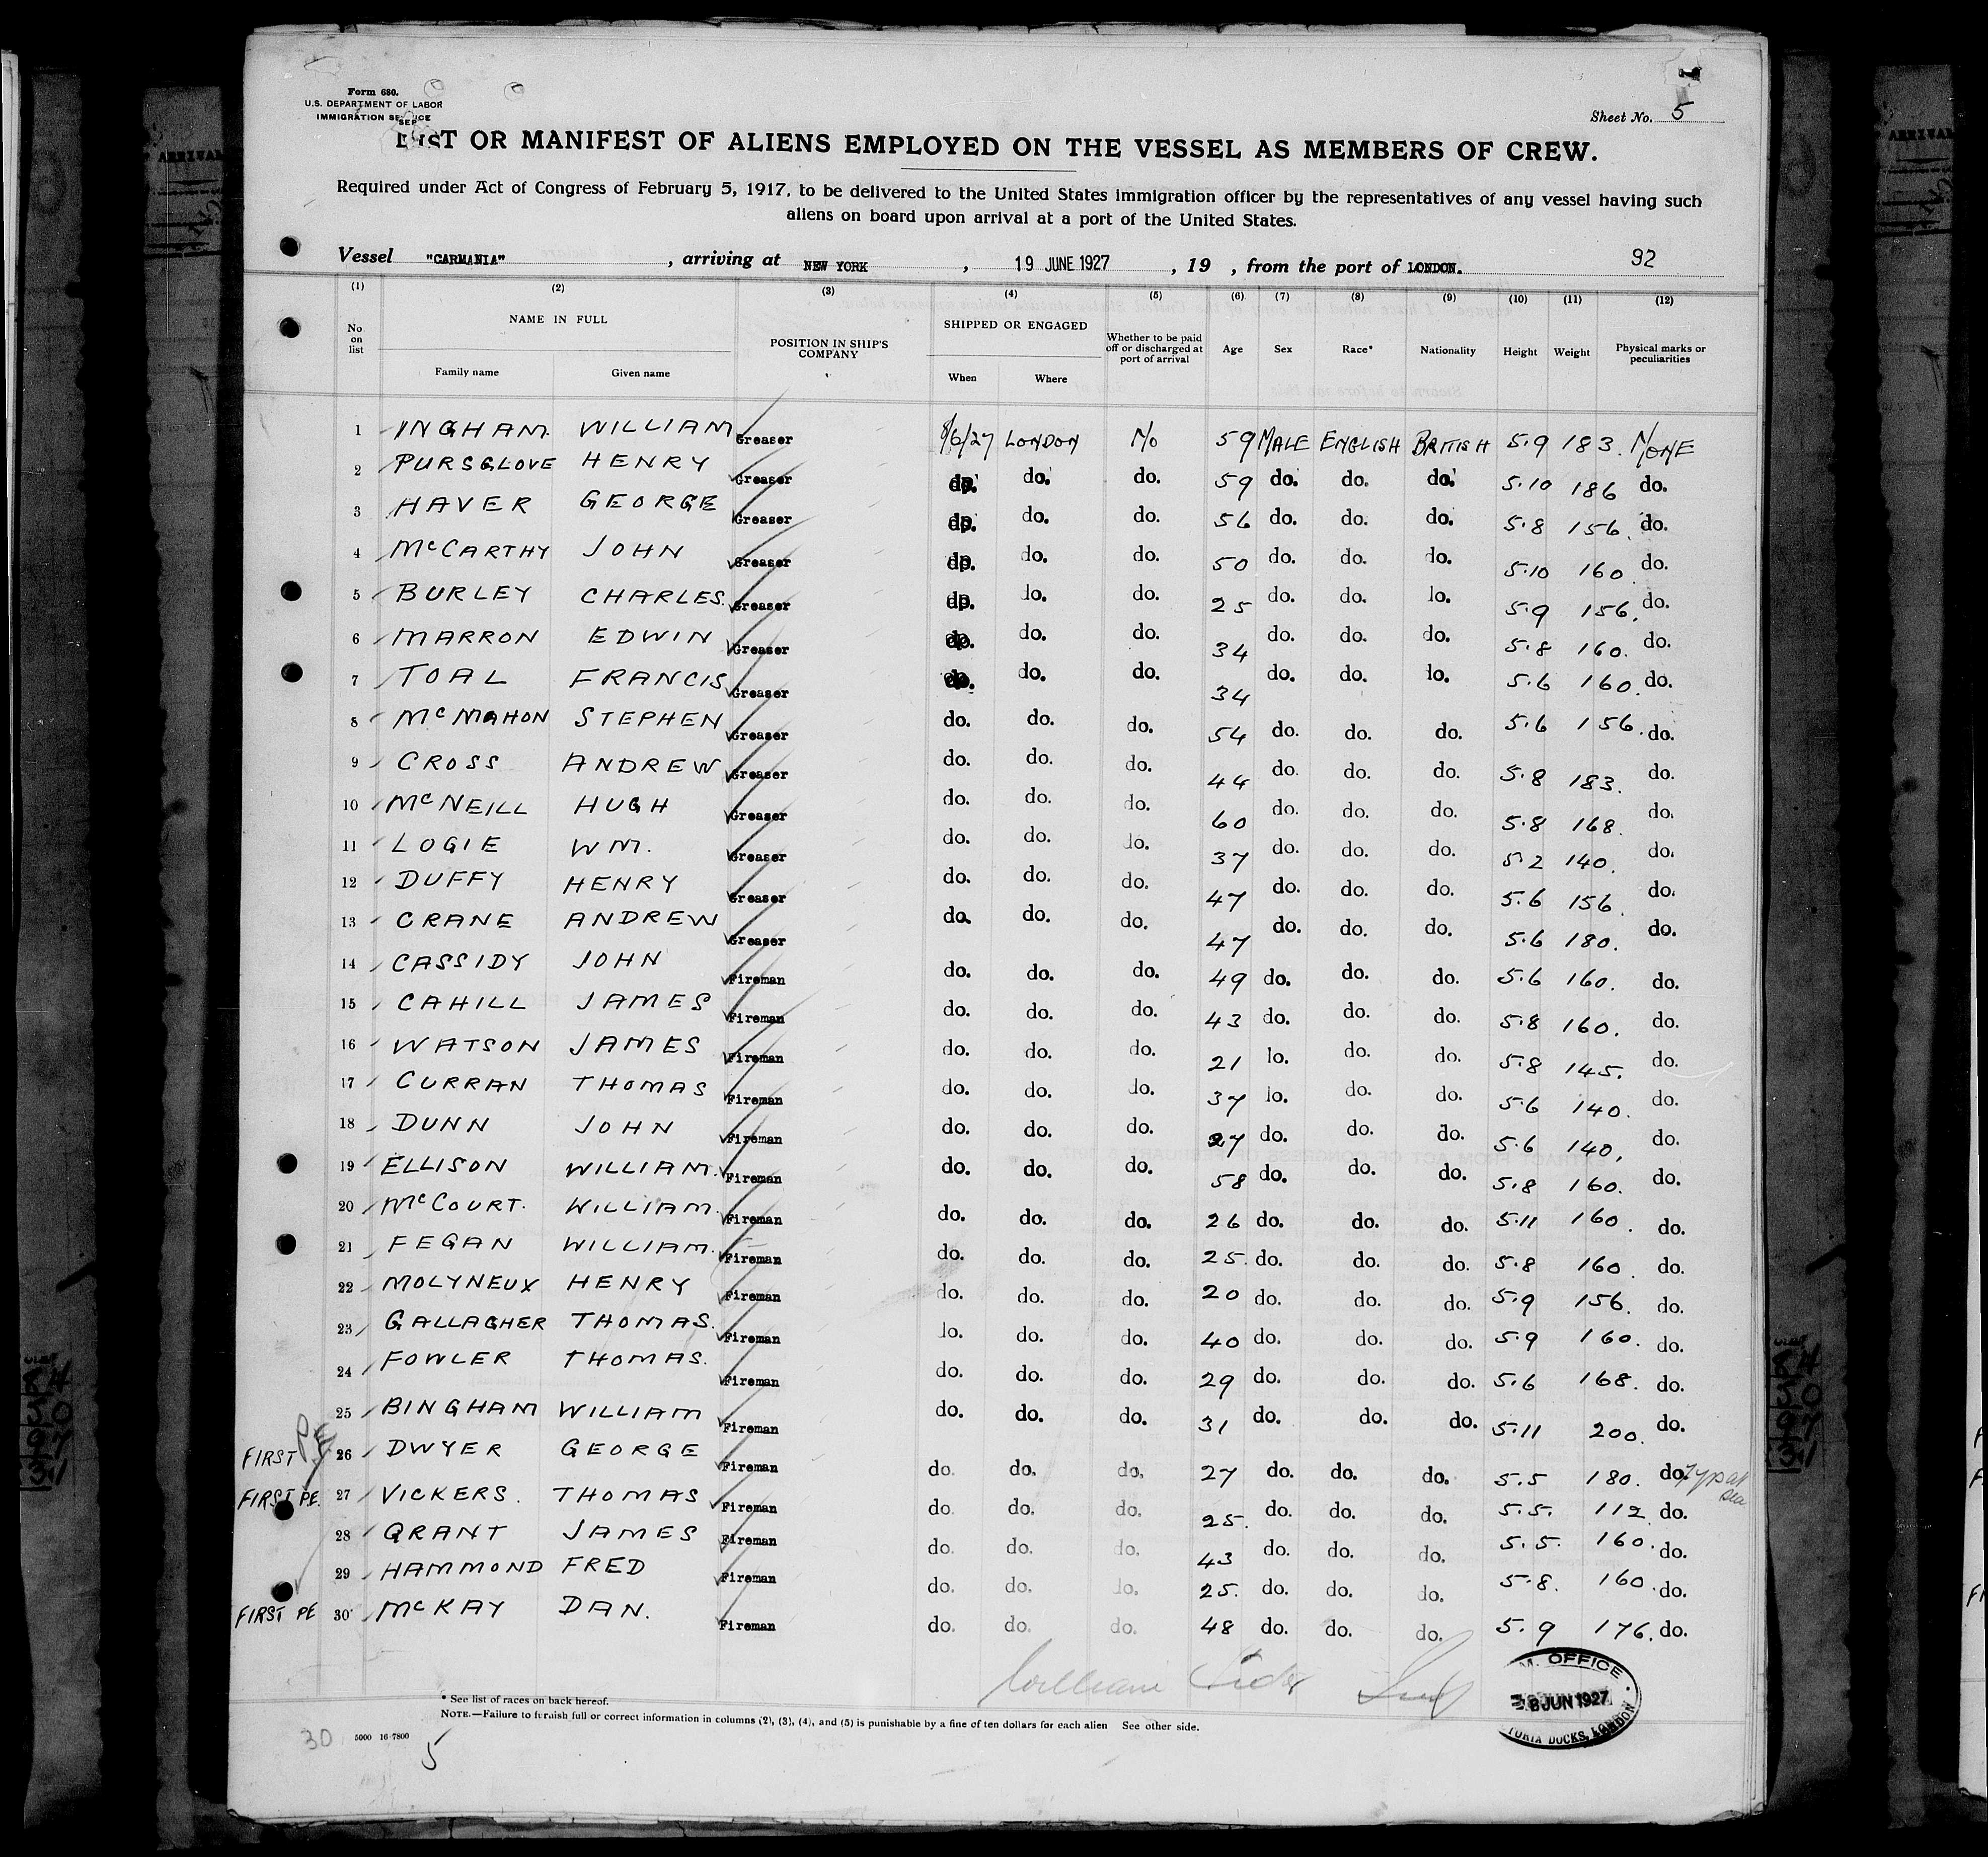 Form 680.
U.S. DEPARTMENT OF LABOR
IMMIGRATION SERVICE
Sheet No. 5
LIST OR MANIFEST OF ALIENS EMPLOYED ON THE VESSEL AS MEMBERS OF CREW.
Required under Act of Congress of February 5, 1917, to be delivered to the United States immigration officer by the representatives of any vessel having such
aliens on board upon arrival at a port of the United States.
Vessel "CARMANIA", arriving at NEW YORK, 19 JUNE 1927, 19 , from the port of LONDON. 92
(1) (2) (3) (4) (5) (6) (7) (8) (9) (10) (11) (12)
No on list NAME IN FULL POSITION IN SHIP'S COMPANY SHIPPED OR ENGAGED Whether to be paid off or discharged at port of arrival Age Sex Race* Nationality Height Weight Physical marks or peculiarities
Family name Given name When Where
1 INGHAM WILLIAM Greaser 8/6/27 LONDON No 59 MALE ENGLISH BRITISH 5.9 183. NONE
2 PURSGLOVE HENRY Greaser do. do. do. 59 do. do. do. 5.10 186 do.
3 HAVER GEORGE Greaser do. do. do. 56 do. do. do. 5.8 156. do.
4 McCARTHY JOHN Greaser do. do. do. 50 do. do. do. 5.10 160 do.
5 BURLEY CHARLES. Greaser do. do. do. 25 do. do. do. 5.9 156. do.
6 MARRON EDWIN Greaser do. do. do. 34 do. do. do. 5.8 160. do.
7 TOAL FRANCIS Greaser do. do. do. 34 do. do. do. 5.6 160. do.
8 McMAHON STEPHEN Greaser do. do. do. 54 do. do. do. 5.6 156. do.
9 CROSS ANDREW Greaser do. do. do. 44 do. do. do. 5.8 183. do.
10 McNEILL HUGH Greaser do. do. do. 60 do. do. do. 5.8 168. do.
11 LOGIE WM. Greaser do. do. do. 37 do. do. do. 5.2 140. do.
12 DUFFY HENRY Greaser do. do. do. 47 do. do. do. 5.6 156. do.
13 CRANE ANDREW Greaser do. do. do. 47 do. do. do. 5.6 180. do.
14 CASSIDY JOHN Fireman do. do. do. 49 do. do. do. 5.6 160. do.
15 CAHILL JAMES Fireman do. do. do. 43 do. do. do. 5.8 160. do.
16 WATSON JAMES Fireman do. do. do. 21 do. do. do. 5.8 145. do.
17 CURRAN THOMAS Fireman do. do. do. 37 do. do. do. 5.6 140. do.
18 DUNN JOHN Fireman do. do. do. 27 do. do. do. 5.6 140. do.
19 ELLISON WILLIAM. Fireman do. do. do. 58 do. do. do. 5.8 160. do.
20 McCOURT. WILLIAM. Fireman do. do. do. 26 do. do. do. 5.11 160. do.
21 FEGAN WILLIAM. Fireman do. do. do. 25. do. do. do. 5.8 160. do.
22 MOLYNEUX HENRY Fireman do. do. do. 20 do. do. do. 5.9 156. do.
23 GALLAGHER THOMAS. Fireman do. do. do. 40 do. do. do. 5.9 160. do.
24 FOWLER THOMAS. Fireman do. do. do. 29 do. do. do. 5.6 168. do.
25 BINGHAM WILLIAM Fireman do. do. do. 31 do. do. do. 5.11 200. do.
FIRST PE 26 DWYER GEORGE Fireman do. do. do. 27 do. do. do. 5.5 180. do.
FIRST PE. 27 VICKERS. THOMAS Fireman do. do. do. 25. do. do. do. 5.5. 112. do.
28 GRANT JAMES Fireman do. do. do. 43 do. do. do. 5.5. 160. do.
29 HAMMOND FRED Fireman do. do. do. 25. do. do. do. 5.8. 160. do.
FIRST PE 30 McKAY DAN. Fireman do. do. do. 48 do. do. do. 5.9 176. do.
M. OFFICE
8 JUN 1927
TORIA DOCKS, LONDON
* See list of races on back hereof.
NOTE.—Failure to furnish full or correct information in columns (2), (3), (4), and (5) is punishable by a fine of ten dollars for each alien See other side.
30 5000 16-7800
5